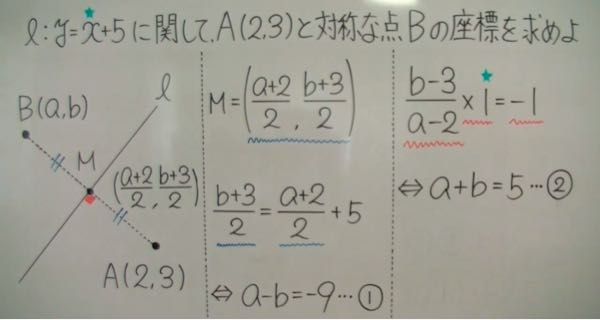 ℓ:y=x+5に関して,A(2,3)と対称な点Bの座標を求めよ
B(a,b)
ℓ
M
(a+2/2, b+3/2)
A(2,3)
M=(a+2/2, b+3/2)
b+3/2=a+2/2+5
⇔a-b=-9…①
b-3/a-2×1=-1
⇔a+b=5…②